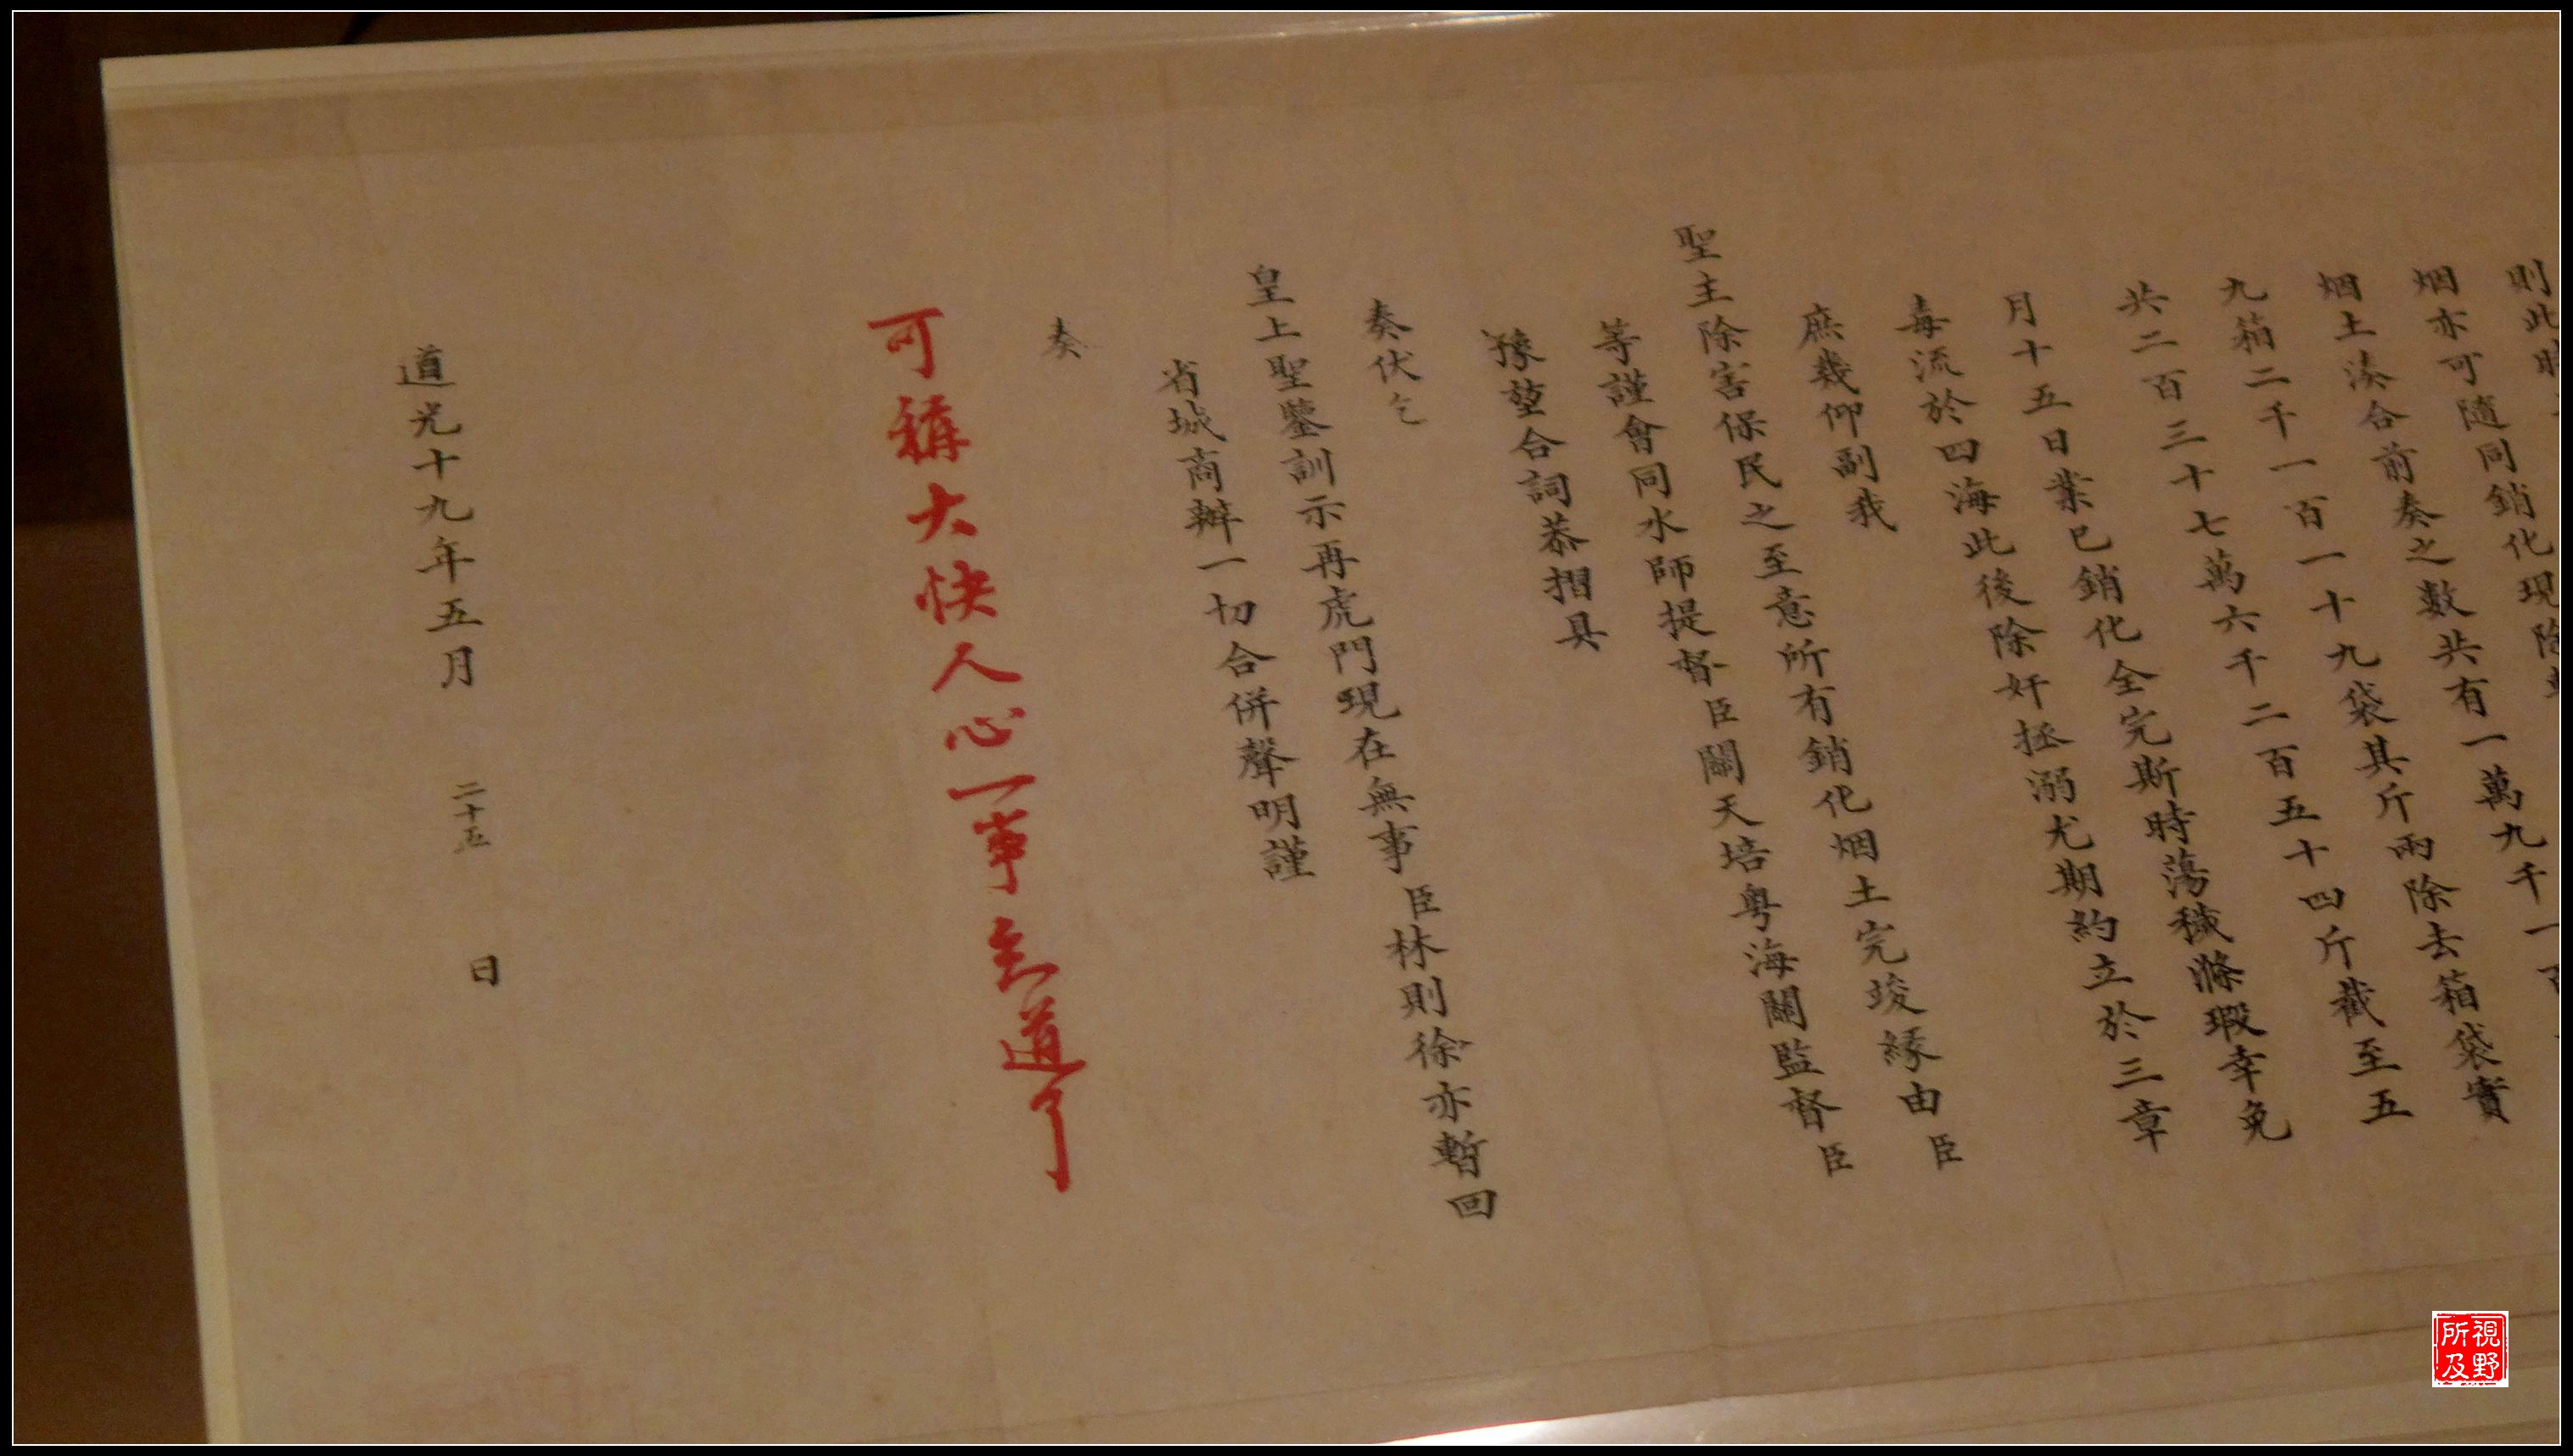 則此時
烟亦可隨同銷化現除
烟土湊合前奏之數共有一萬九千一百
九箱二千一百一十九袋其斤兩除去箱袋實
共二百三十七萬六千二百五十四斤截至五
月十五日業已銷化全完斯時蕩穢滌瑕幸免
毒流於四海此後除奸拯溺尤期約立於三章
庶幾仰副我
聖主除害保民之至意所有銷化烟土完竣緣由臣
等謹會同水師提督臣關天培粵海關監督臣
豫堃合詞恭摺具
奏伏乞
皇上聖鑒訓示再虎門現在無事臣林則徐亦暫回
省城商辦一切合併聲明謹
奏
可稱大快人心一事知道了
道光十九年五月二十五日
視野所及